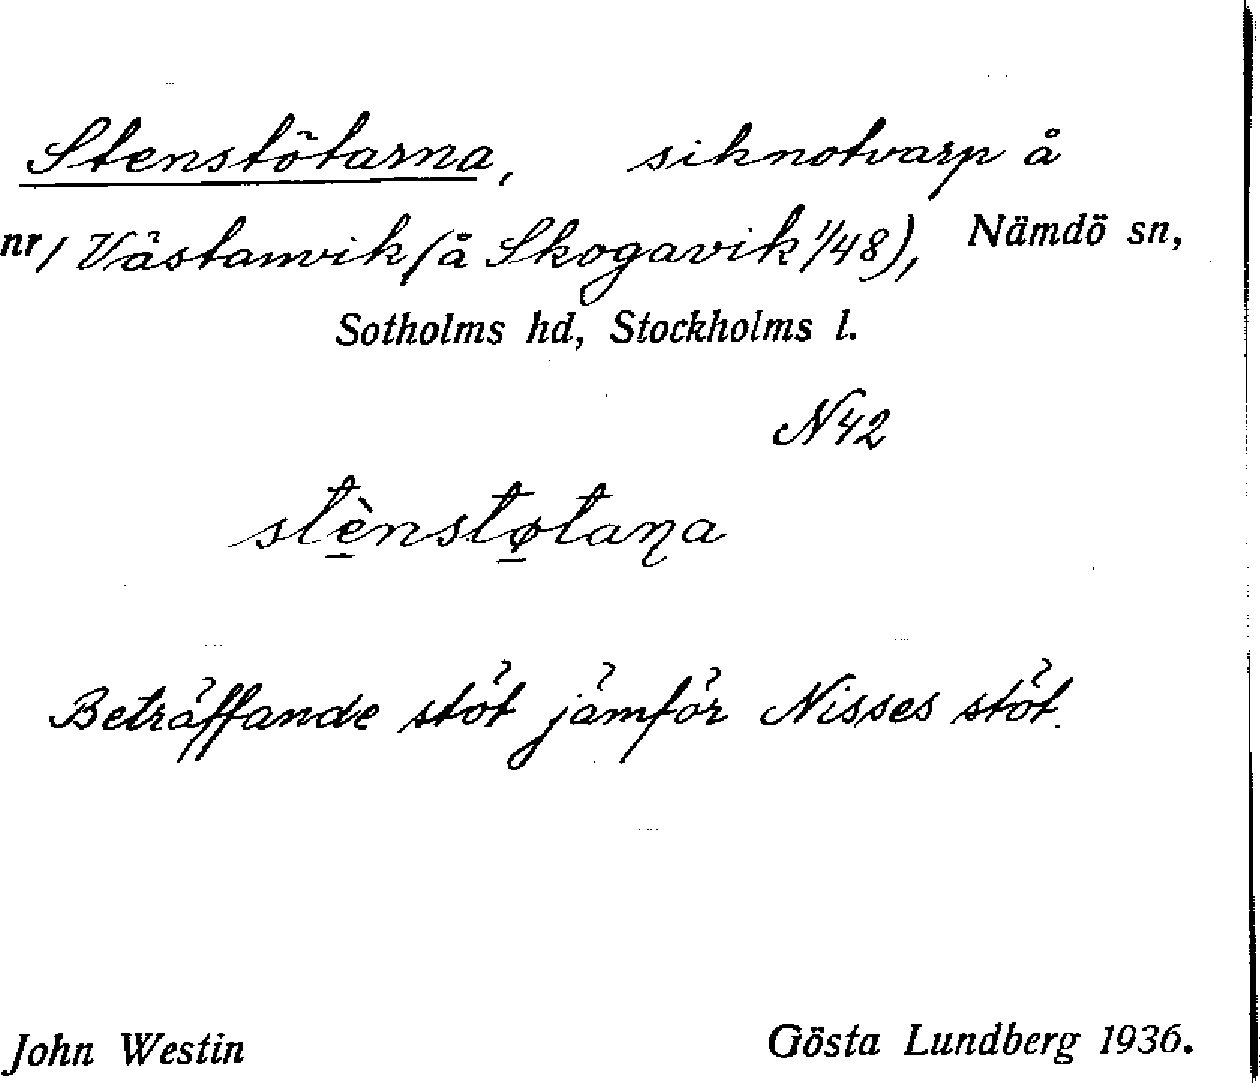 Stenstötarna, siknotvarp å
nr/ Västanvik (å Skogavik 1/48), Nämdö sn,
Sotholms hd, Stockholms l.
N42
stènstøtaɳa
Beträffande stöt jämför Nisses stöt.
John Westin Gösta Lundberg 1936.